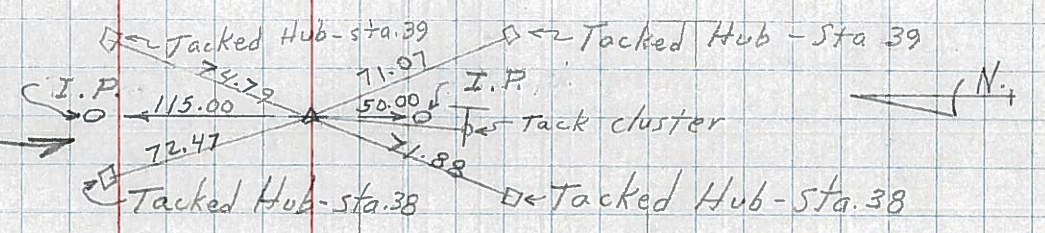 Tacked Hub-sta.39
Tacked Hub - Sta 39
74.79
71.07
I.P.
I.P.
N.
115.00
50.00
Tack cluster
72.47
71.88
Tacked Hub-sta.38
Tacked Hub-sta.38